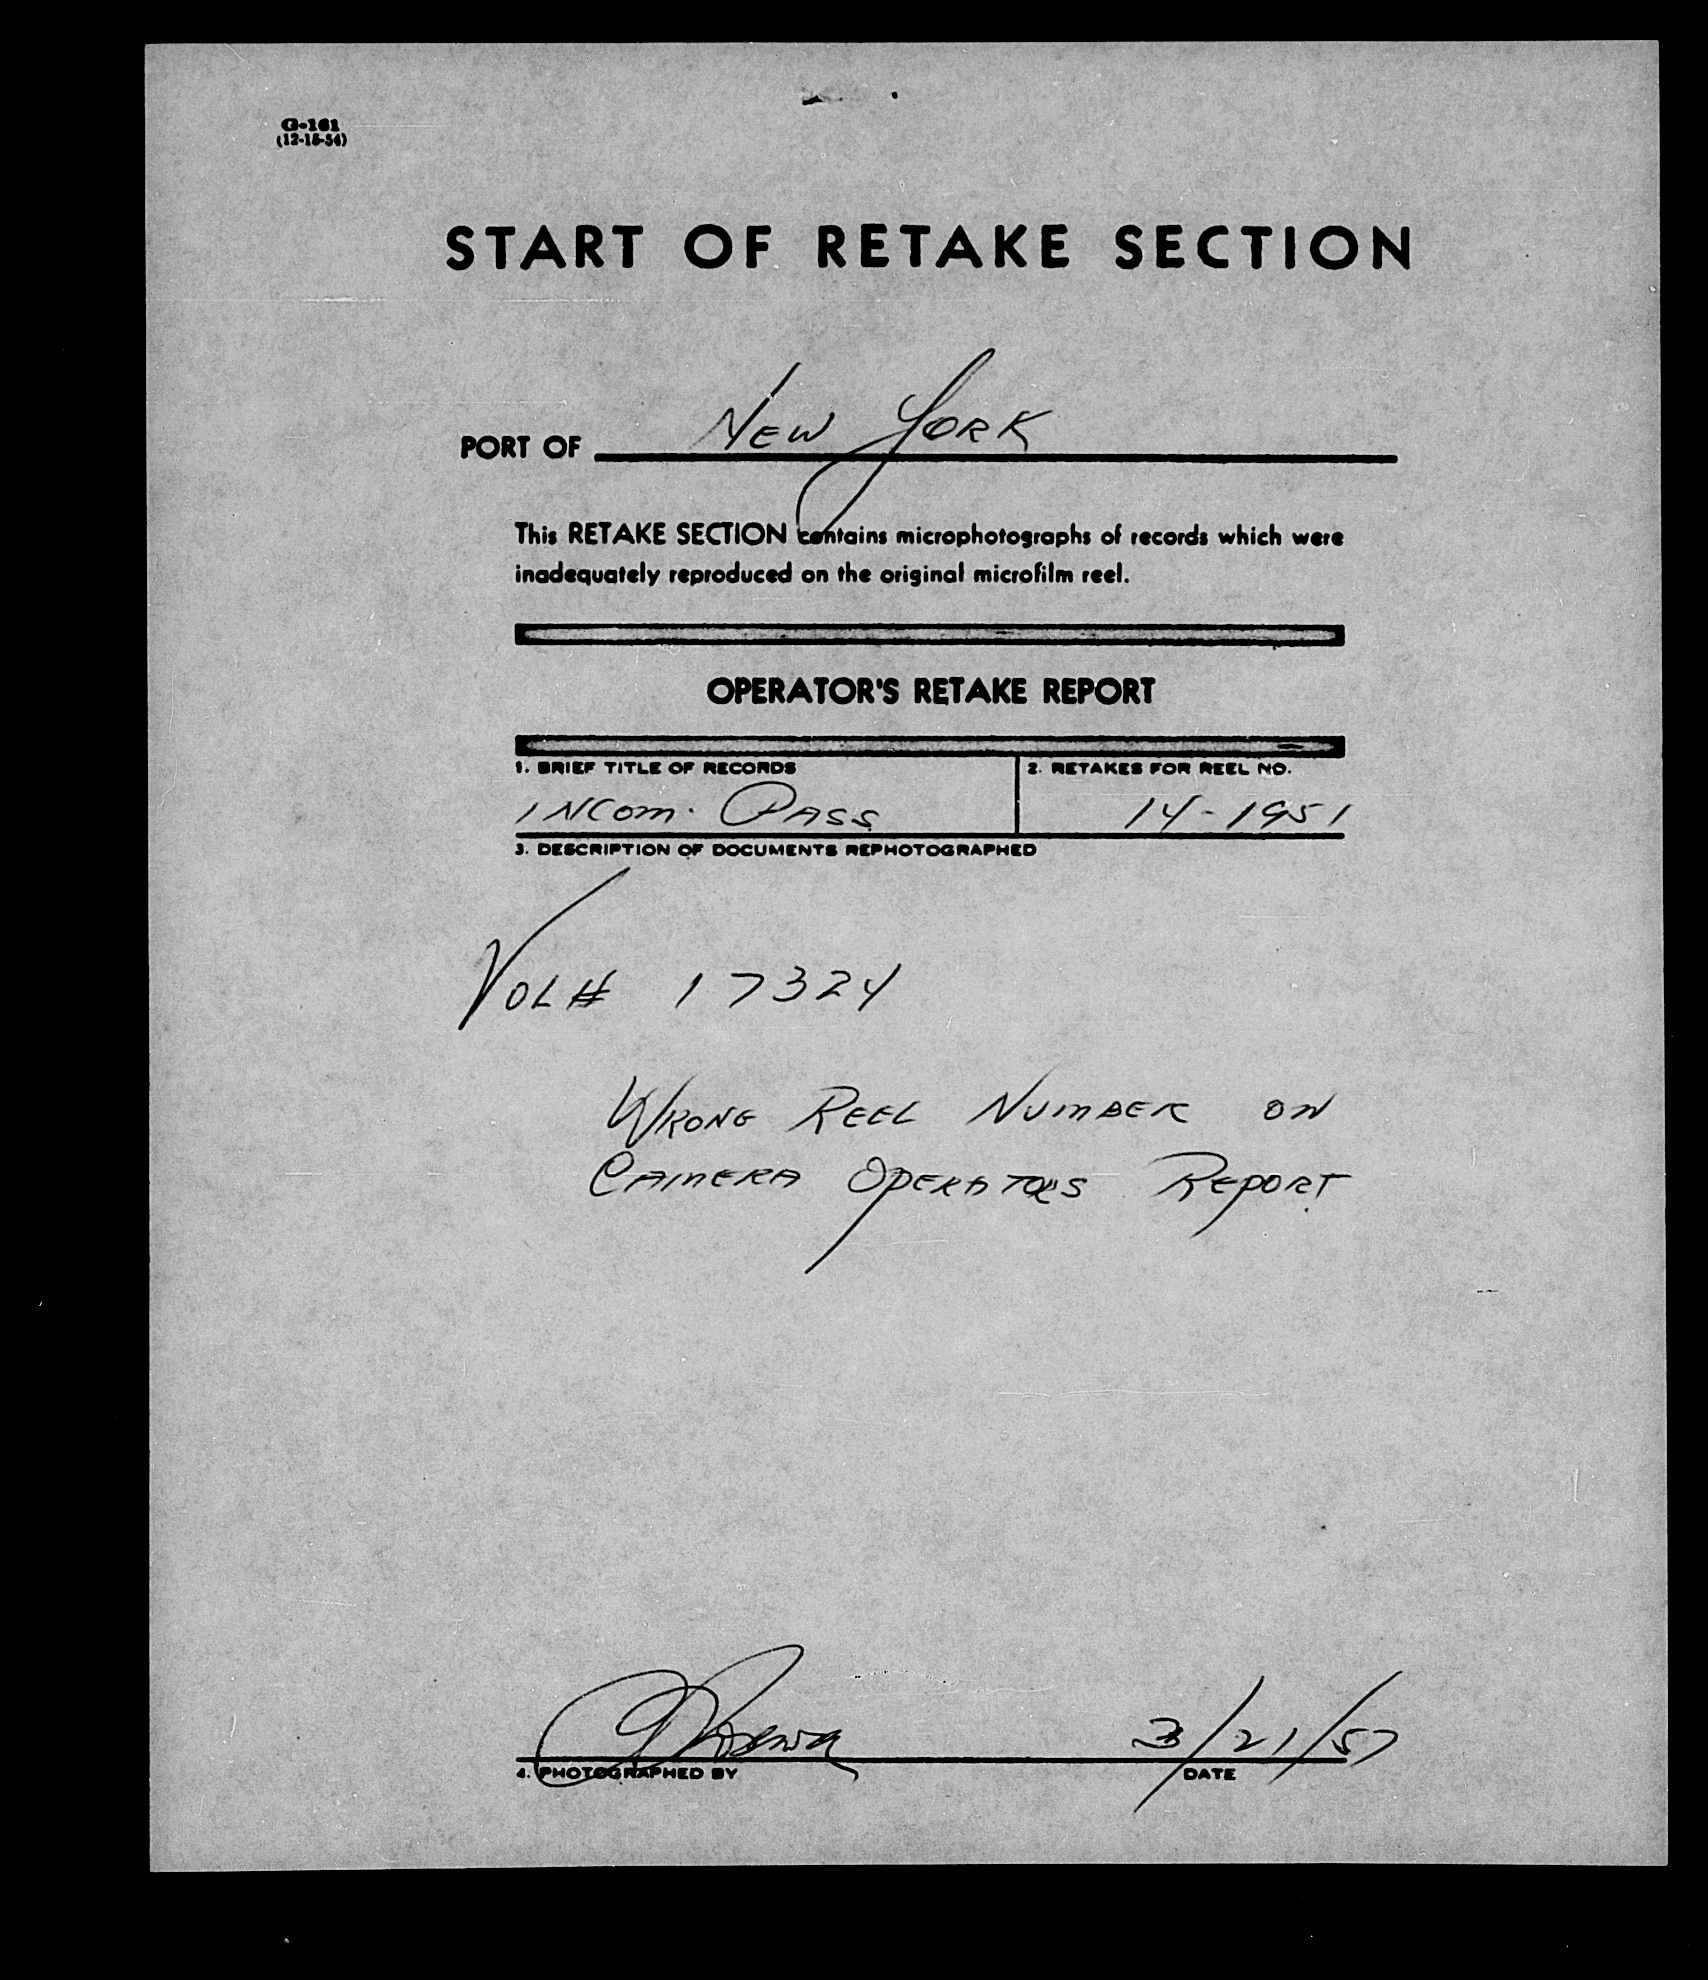 G-161
(12-15-54)
START OF RETAKE SECTION
PORT OF NEW YORK
This RETAKE SECTION contains microphotographs of records which were
inadequately reproduced on the original microfilm reel.
OPERATOR'S RETAKE REPORT
1. BRIEF TITLE OF RECORDS
2. RETAKES FOR REEL NO.
INCOM. PASS
14-1951
3. DESCRIPTION OF DOCUMENTS REPHOTOGRAPHED
VOL# 17324
WRONG REEL NUMBER ON
CAMERA OPERATORS REPORT
3/21/57
4. PHOTOGRAPHED BY
DATE